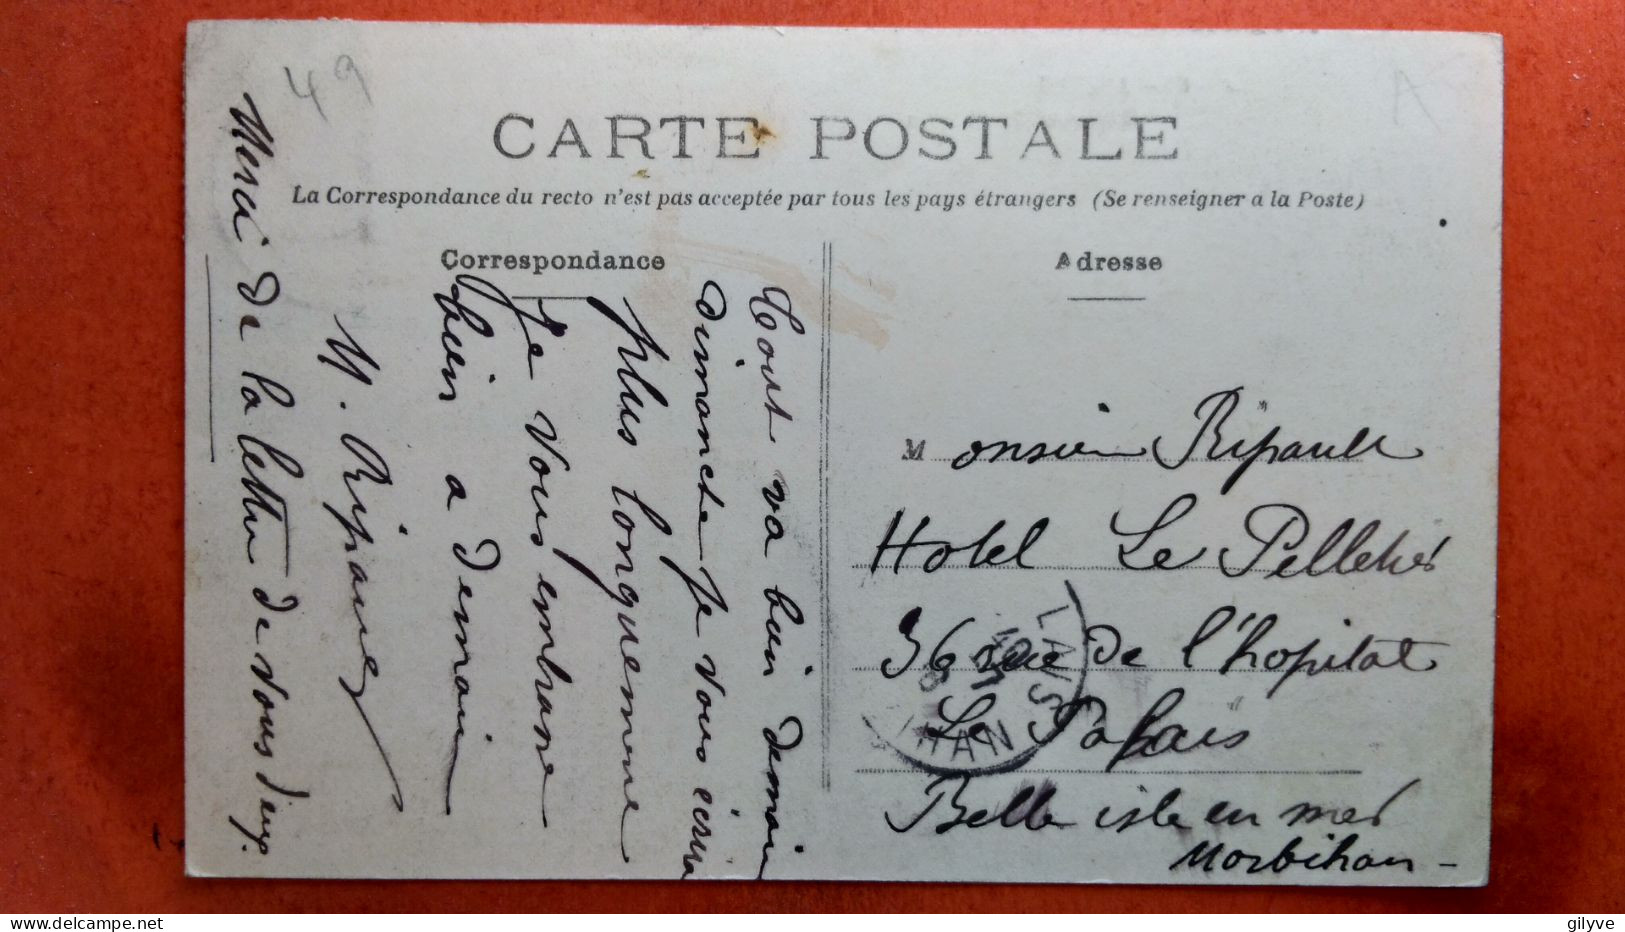 49
A
CARTE POSTALE
La Correspondance du recto n'est pas acceptée par tous les pays étrangers (Se renseigner a la Poste)
Correspondance
Adresse
Tout va bien demain
dimanche je vous écrirai
plus longuement
Je vous embrasse
bien a demain
M. Ripault
Merci de la lettre de vous deux.
Monsieur Ripault
Hotel Le Pelletier
36 rue de l'hopital
Le Palais
Belle isle en mer
Morbihan -
gilyve